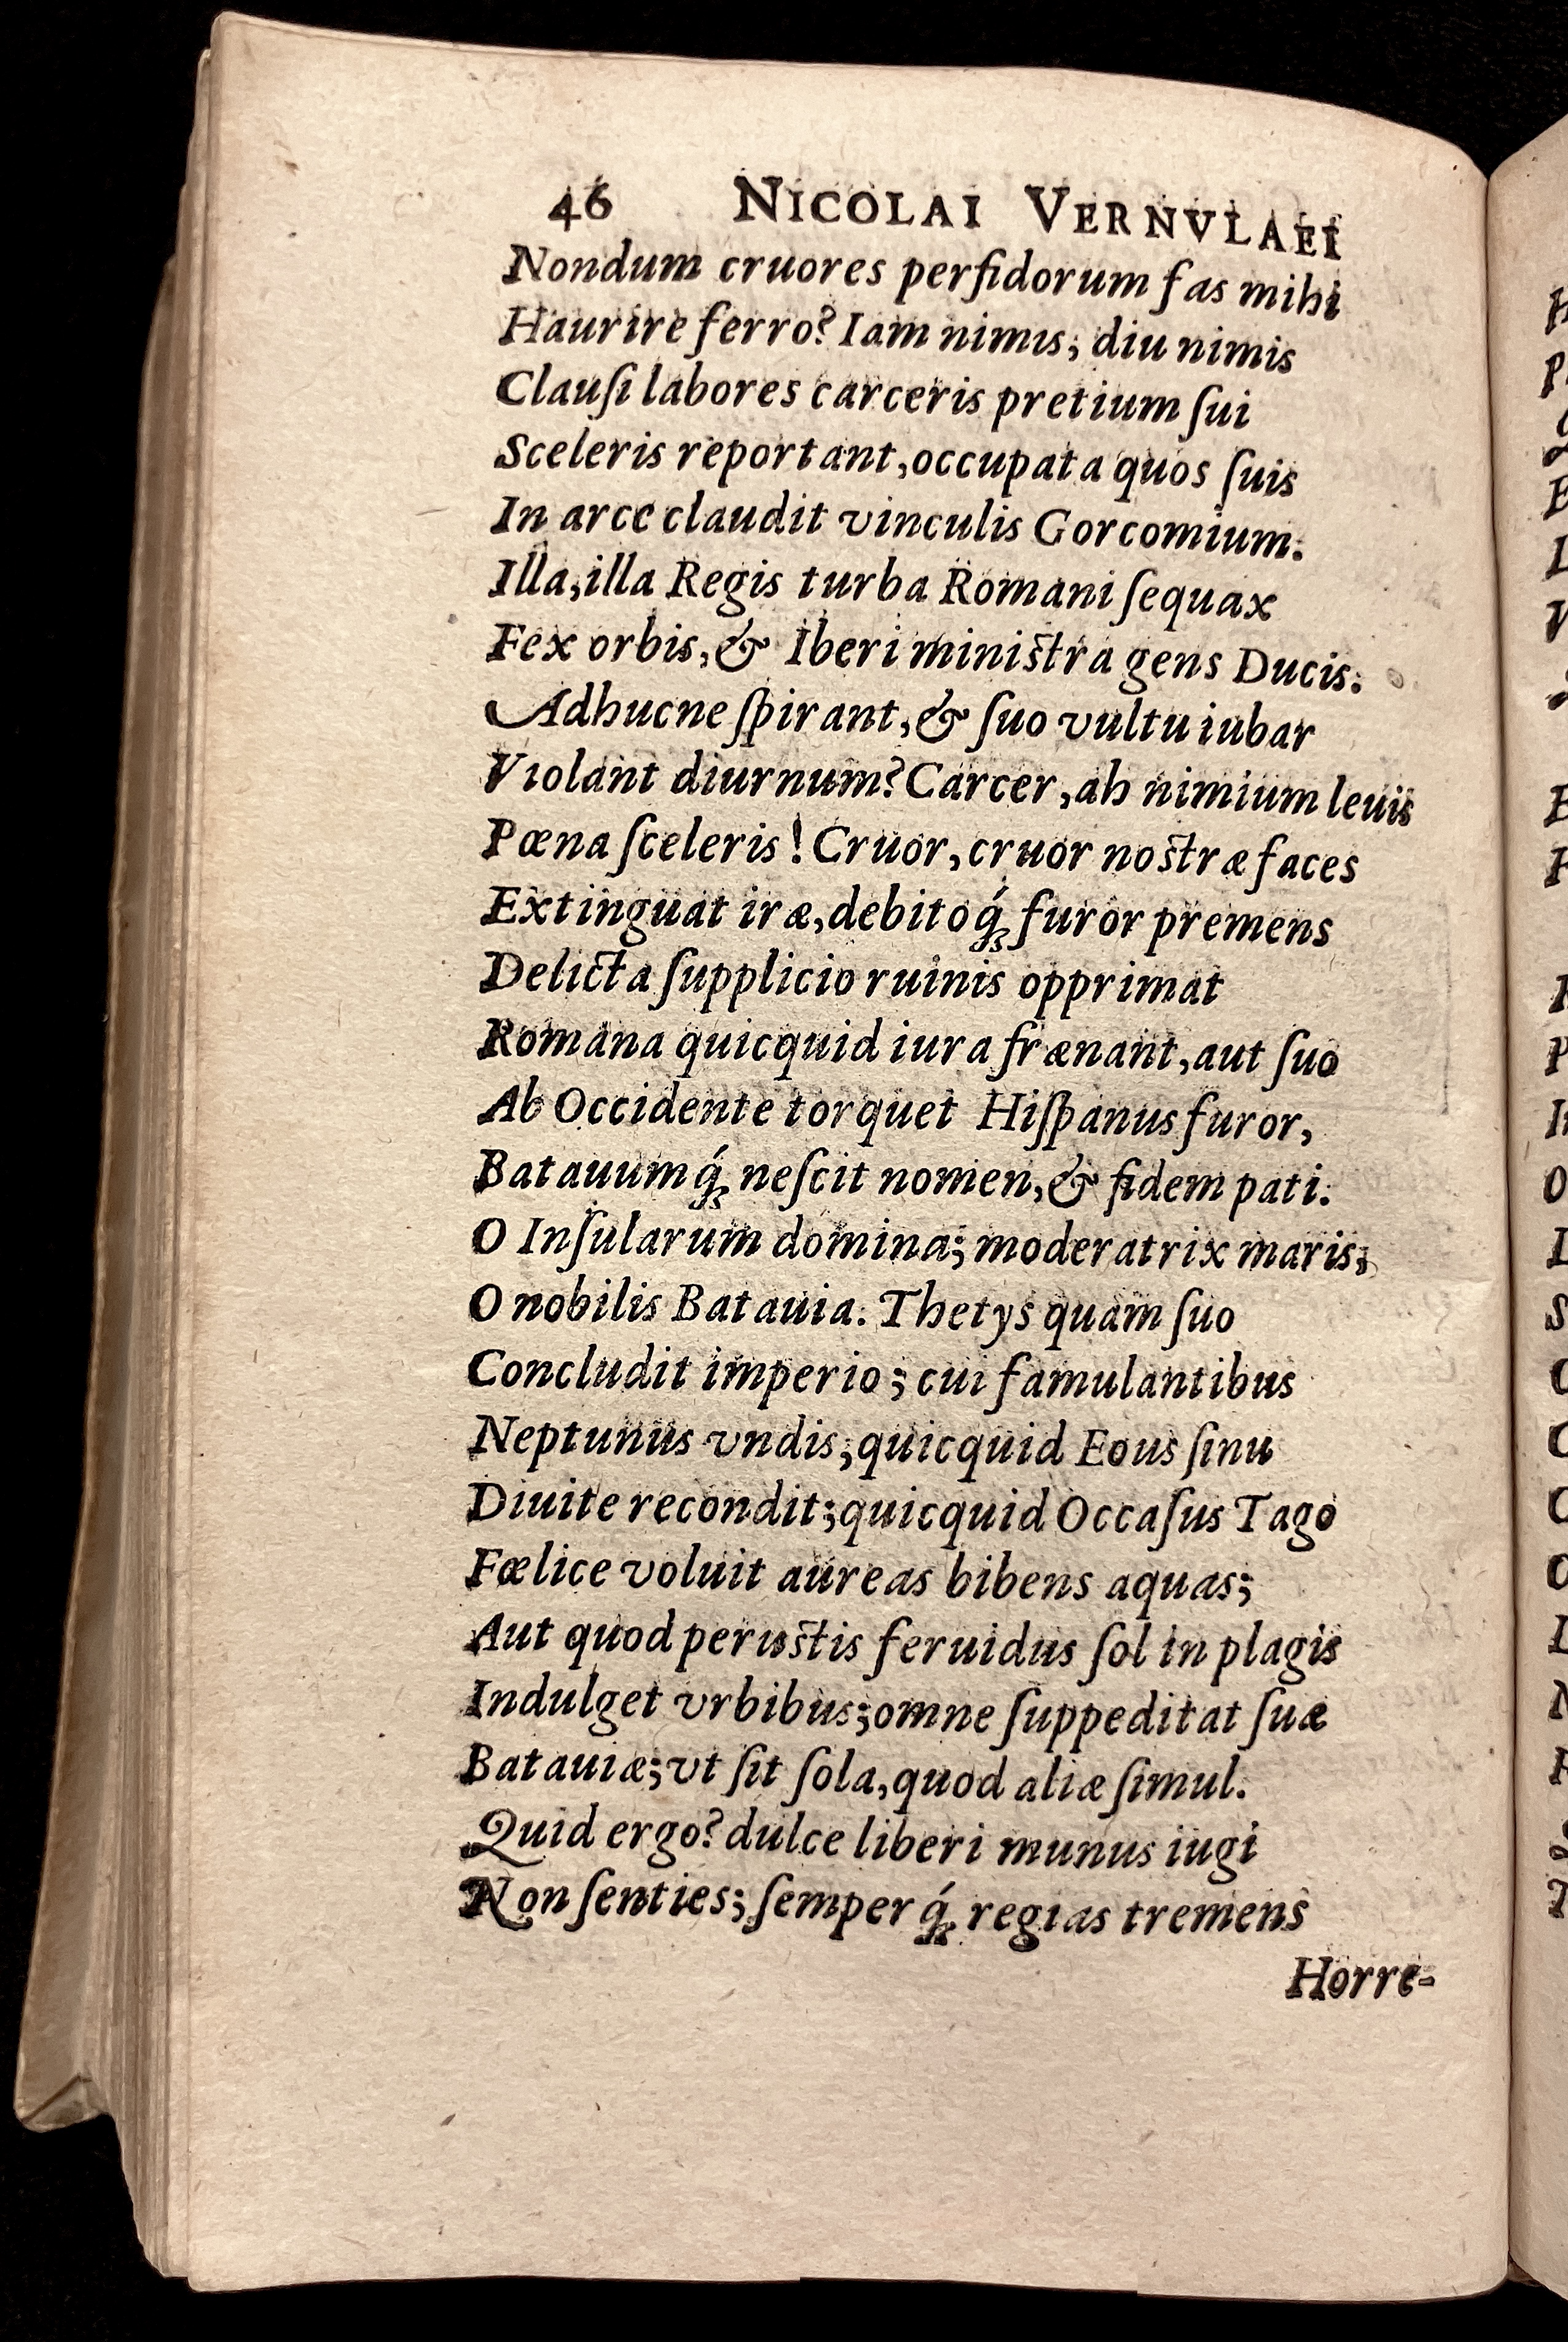 46 NICOLAI VERNVLAEI
Nondum cruores perfidorum fas mihi
Haurire ferro? Iam nimis, diu nimis
Clauſi labores carceris pretium ſui
Sceleris reportant, occupata quos ſuis
In arce claudit vinculis Gorcomium.
Illa, illa Regis turba Romani ſequax
Fex orbis, & Iberi miniſtra gens Ducis.
Adhucne ſpirant, & ſuo vultu iubar
Violant diurnum? Carcer, ah nimium leuis
Pœna ſceleris! Cruor, cruor noſtræ faces
Extinguat iræ, debitoq́; furor premens
Delicta ſupplicio ruinis opprimat
Romana quicquid iura frænant, aut ſuo
Ab Occidente torquet Hiſpanus furor,
Batauumq́; neſcit nomen, & fidem pati.
O Inſularum domina; moderatrix maris;
O nobilis Batauia. Thetys quam ſuo
Concludit imperio; cui famulantibus
Neptunus vndis, quicquid Eous ſinu
Diuite recondit; quicquid Occaſus Tago
Fœlice voluit aureas bibens aquas;
Aut quod peruſtis feruidus ſol in plagis
Indulget vrbibus; omne ſuppeditat ſuæ
Batauiæ; vt ſit ſola, quod aliæ ſimul.
Quid ergo? dulce liberi munus iugi
Non ſenties; ſemperq́; regias tremens
Horre-